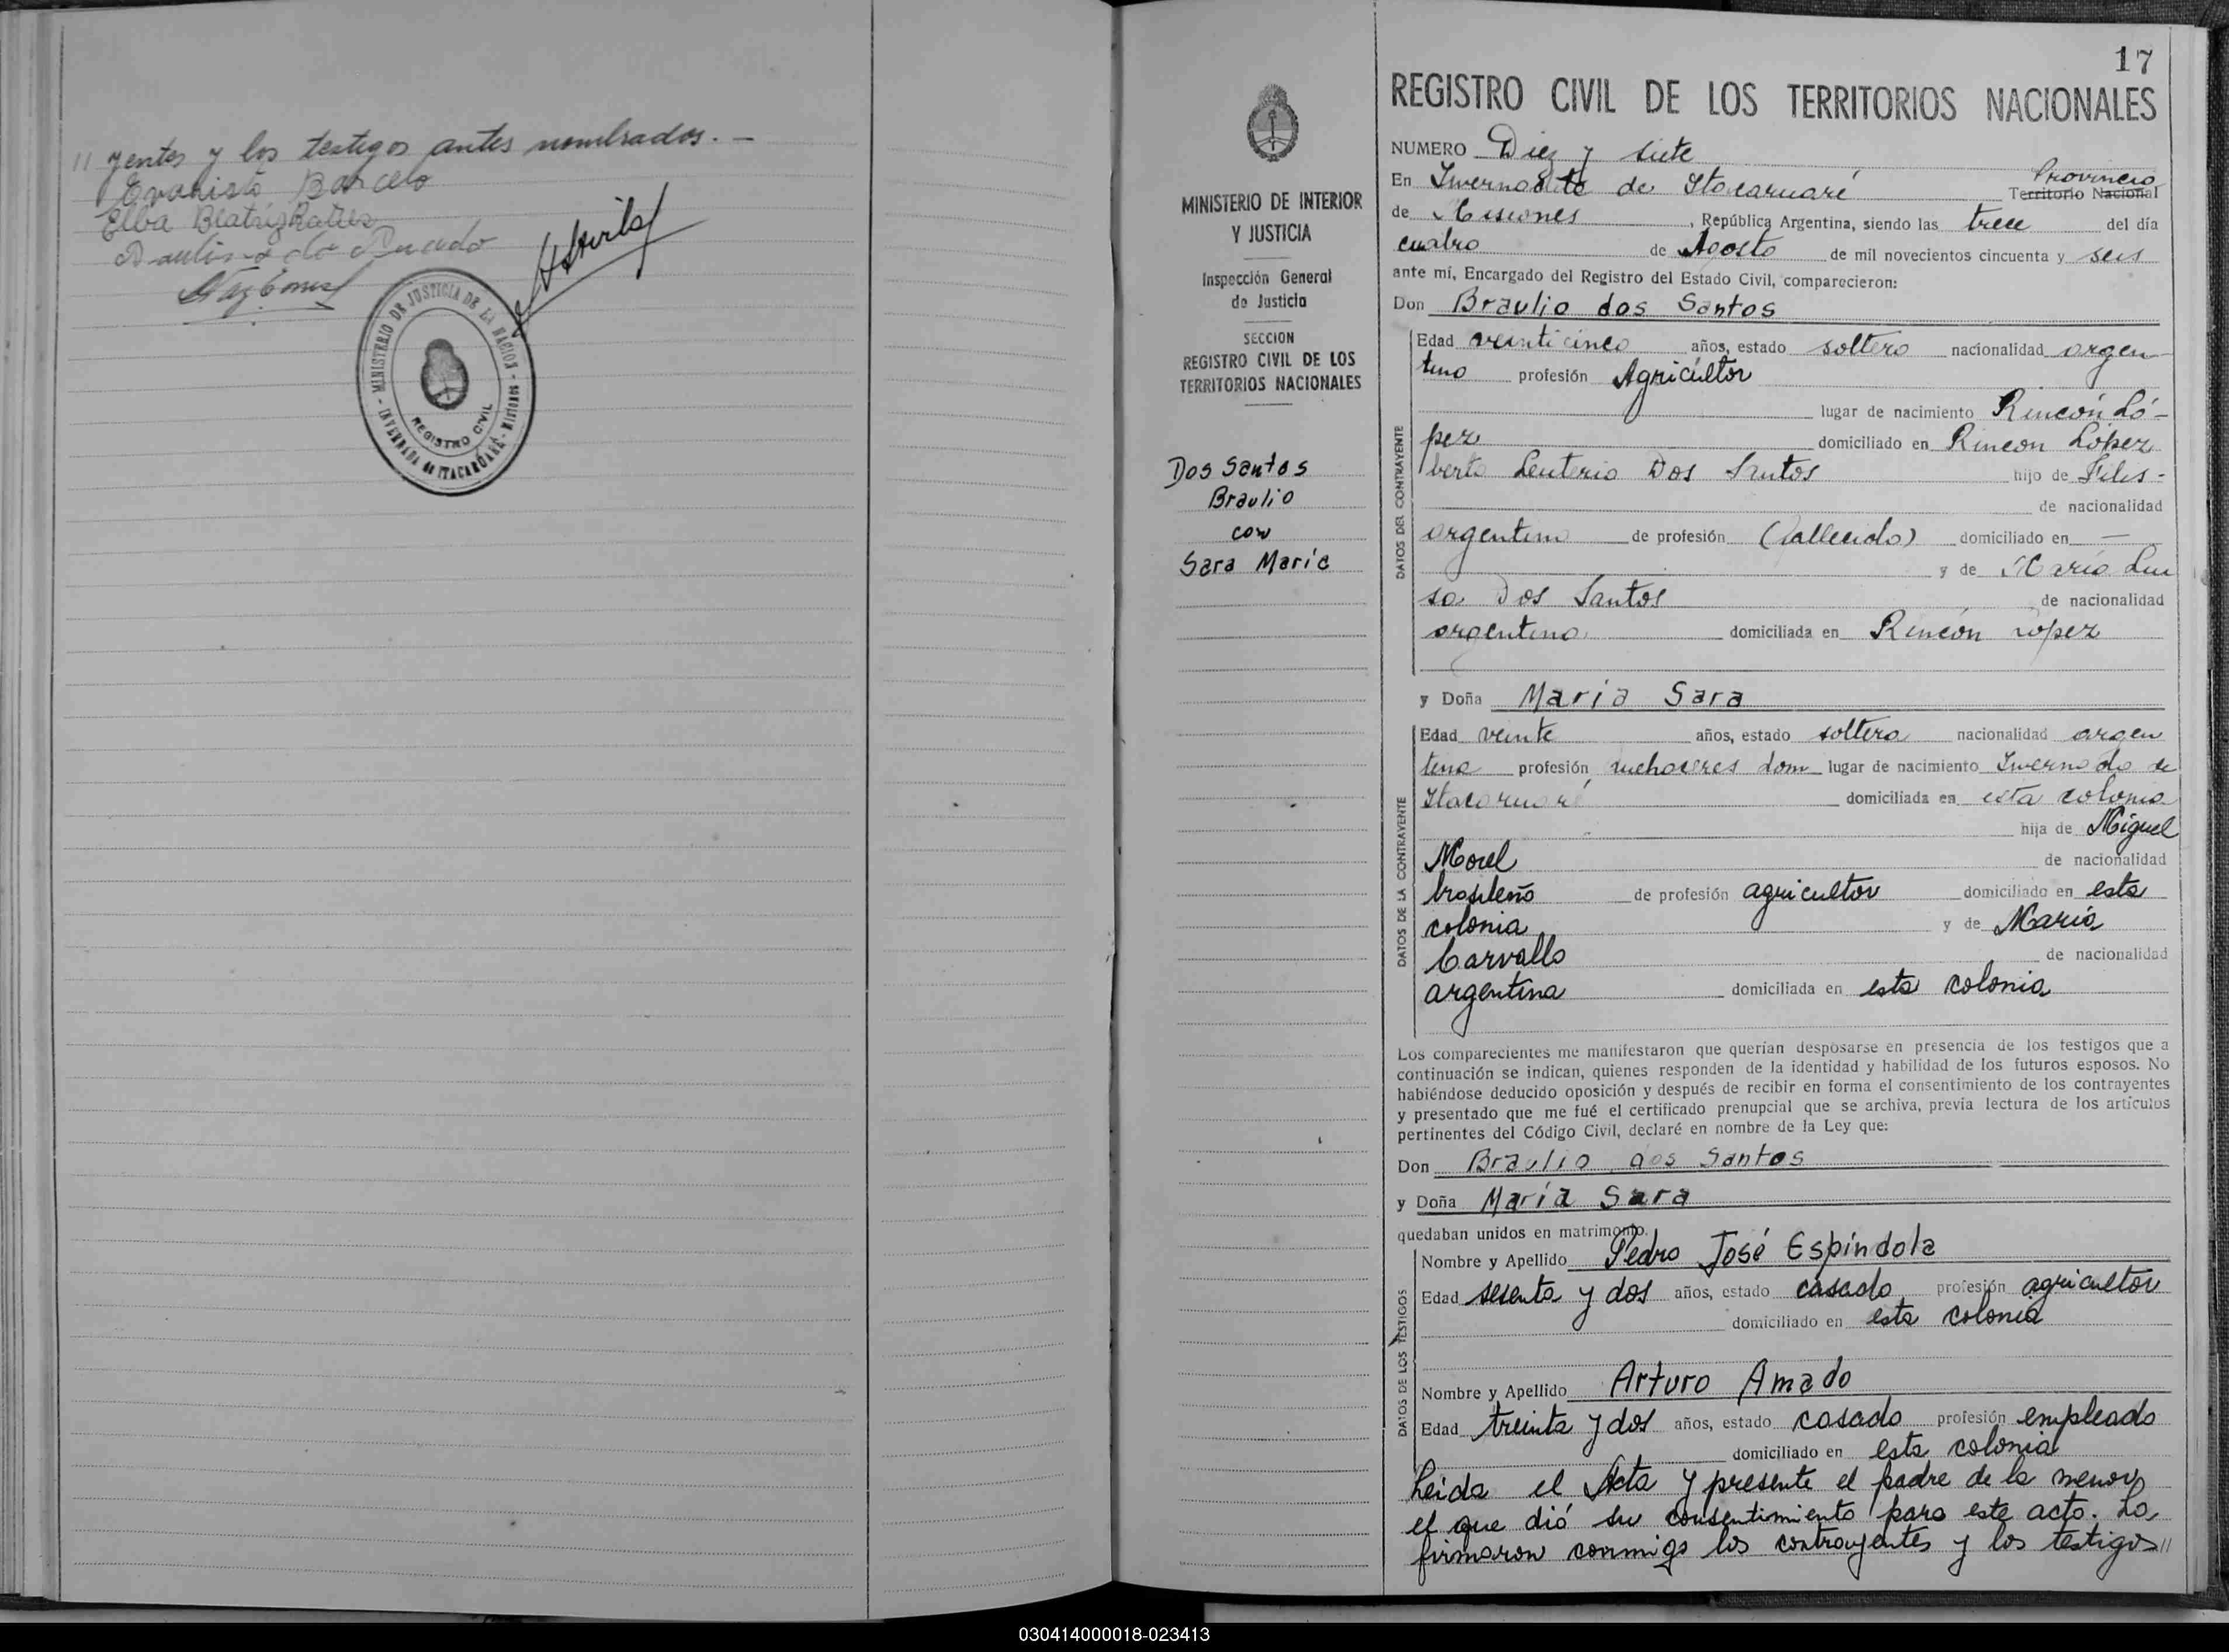 // yentes y los testigos antes nombrados. —
Evaristo Barcelo
Elba Beatriz
MINISTERIO DE JUSTICIA DE LA NACION - MISIONES
INVERNADA de ITACARUARE
REGISTRO CIVIL
17
REGISTRO CIVIL DE LOS TERRITORIOS NACIONALES
MINISTERIO DE INTERIOR
Y JUSTICIA
Inspección General
de Justicia
SECCION
REGISTRO CIVIL DE LOS
TERRITORIOS NACIONALES
Dos Santos
Braulio
con
Sara María
NUMERO Diez y siete
Provincia
En Invernada de Itacaruaré Territorio Nacional
de Misiones, República Argentina, siendo las trece del día
cuatro de Agosto de mil novecientos cincuenta y seis
ante mí, Encargado del Registro del Estado Civil, comparecieron:
Don Braulio dos Santos
DATOS DEL CONTRAYENTE
Edad veinticinco años, estado soltero nacionalidad argen-
tino profesión Agricultor
lugar de nacimiento Rincón Ló-
pez domiciliado en Rincon López
berto Leuterio Dos Santos hijo de Filis-
de nacionalidad
argentino de profesión (fallecido) domiciliado en —
y de María Lui
sa Dos Santos de nacionalidad
argentina domiciliada en Rincón López
y Doña María Sara
DATOS DE LA CONTRAYENTE
Edad veinte años, estado soltera nacionalidad argen
tina profesión quehaceres dom lugar de nacimiento Invernada de
Itacaruaré domiciliada en esta colonia
hija de Miguel
Morel de nacionalidad
brasileño de profesión agricultor domiciliado en esta
colonia y de María
Carvallo de nacionalidad
argentina domiciliada en esta colonia
Los comparecientes me manifestaron que querían desposarse en presencia de los testigos que a
continuación se indican, quienes responden de la identidad y habilidad de los futuros esposos. No
habiéndose deducido oposición y después de recibir en forma el consentimiento de los contrayentes
y presentado que me fué el certificado prenupcial que se archiva, previa lectura de los artículos
pertinentes del Código Civil, declaré en nombre de la Ley que:
Don Braulio dos Santos
y Doña María Sara
quedaban unidos en matrimonio.
DATOS DE LOS TESTIGOS
Nombre y Apellido Pedro José Espíndola
Edad sesenta y dos años, estado casado profesión agricultor
domiciliado en esta colonia
Nombre y Apellido Arturo Amado
Edad treinta y dos años, estado casado profesión empleado
domiciliado en esta colonia
Leida el Acta y presente el padre de la menor,
el que dió su consentimiento para este acto. La
firmaron conmigo los contrayentes y los testigos //
030414000018-023413